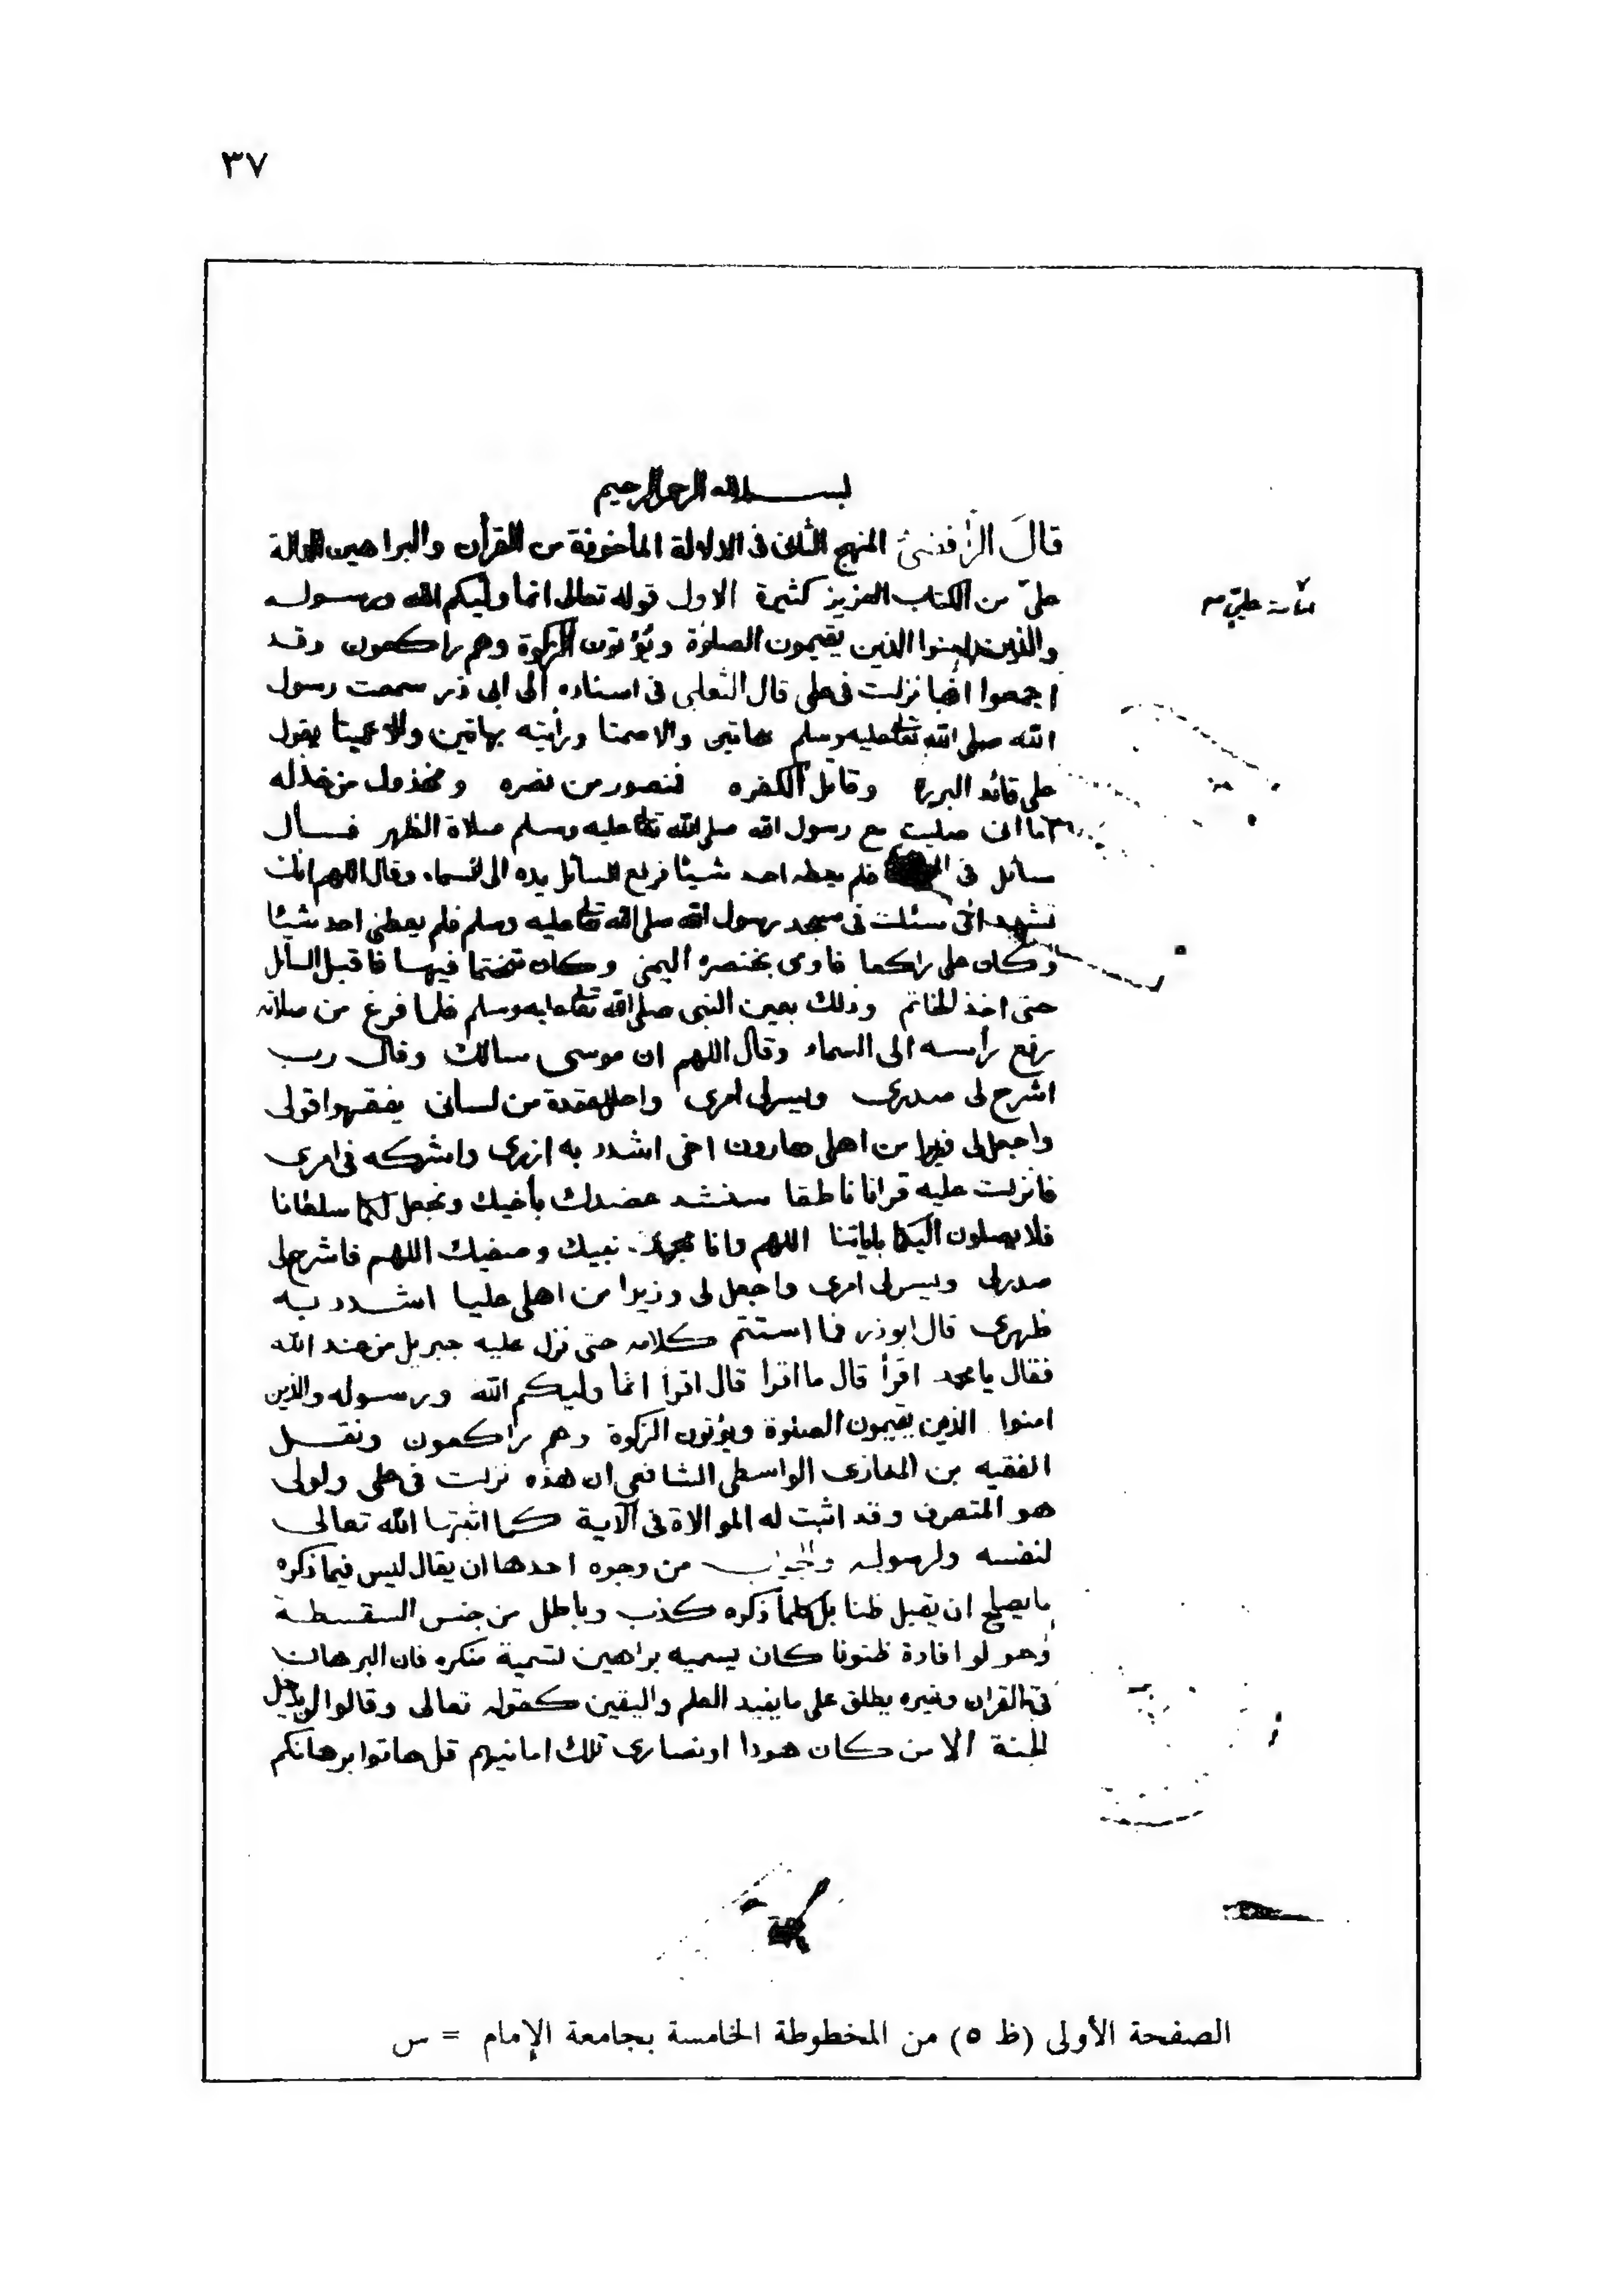 ٣٧
بسم الله الرحمن الرحيم
قال الرافضي المنهج الثاني في الادلة المأخوذة من القرأن والبراهين الدالة
على من الكتاب العزيز كثيرة الاول قوله تعالى انما وليكم الله ورسوله
امامة علي
والذين امنوا الذين يقيمون الصلوة ويؤتون الزكوة وهم راكعون وقد
اجمعوا انها نزلت في علي قال الثعلبي في اسناده الى ابي ذر سمعت رسول
الله صلى الله تعالى عليه وسلم بهاتين والا صمتا ورأيته بهاتين والا عميتا يقول
علي قائد البررة وقاتل الكفره فمنصور من نصره ومخذول من خذله
اما اني صليت مع رسول الله صلى الله تعالى عليه وسلم صلاة الظهر فسأل
سائل في فلم يعطه احد شيئا فرفع السائل يده الى السماء وقال اللهم انك
تشهد اني سئلت في مسجد رسول الله صلى الله تعالى عليه وسلم فلم يعطني احد شيئا
وكان علي راكعا فاومى بخنصره اليمنى وكان متختما فيها فاقبل السائل
حتى اخذ الخاتم وذلك بعين النبي صلى الله تعالى عليه وسلم فلما فرغ من صلاته
رفع رأسه الى السماء وقال اللهم ان موسى سالك وقال رب
اشرح لي صدري ويسر لي امري واحلل عقدة من لساني يفقهوا قولي
واجعل لي وزيرا من اهلي هارون اخي اشدد به ازري واشركه في امري
فانزلت عليه قرانا ناطقا سنشد عضدك بأخيك ونجعل لكما سلطانا
فلا يصلون اليكما باياتنا اللهم وانا محمد نبيك وصفيك اللهم فاشرح لي
صدري ويسر لي امري واجعل لي وزيرا من اهلي عليا اشدد به
ظهري قال ابوذر فما استتم كلامه حتى نزل عليه جبريل من عند الله
فقال يا محمد اقرأ قال ما اقرا قال اقرأ انما وليكم الله ورسوله والذين
امنوا الذين يقيمون الصلوة ويؤتون الزكوة وهم راكعون ونقل
الفقيه بن المغازى الواسطي الشافعي ان هذه نزلت في علي ولولى
هو المتصرف وقد اثبت له الموالاة في الآية كما اثبتها الله تعالى
لنفسه ولرسوله والجواب من وجوه احدها ان يقال ليس فيما ذكره
ما يصلح ان يقبل ظنا بل كلما ذكره كذب وباطل من جنس السفسطة
وهو لو افادة ظنونا كان يسميه براهين تسمية منكره فان البرهان
في القران وغيره يطلق على ما يفيد العلم واليقين كقوله تعالى وقالوا لن يدخل
الجنة الا من كان هودا او نصارى تلك امانيهم قل هاتوا برهانكم
الصفحة الأولى (ظ ٥) من المخطوطة الخامسة بجامعة الإمام = س